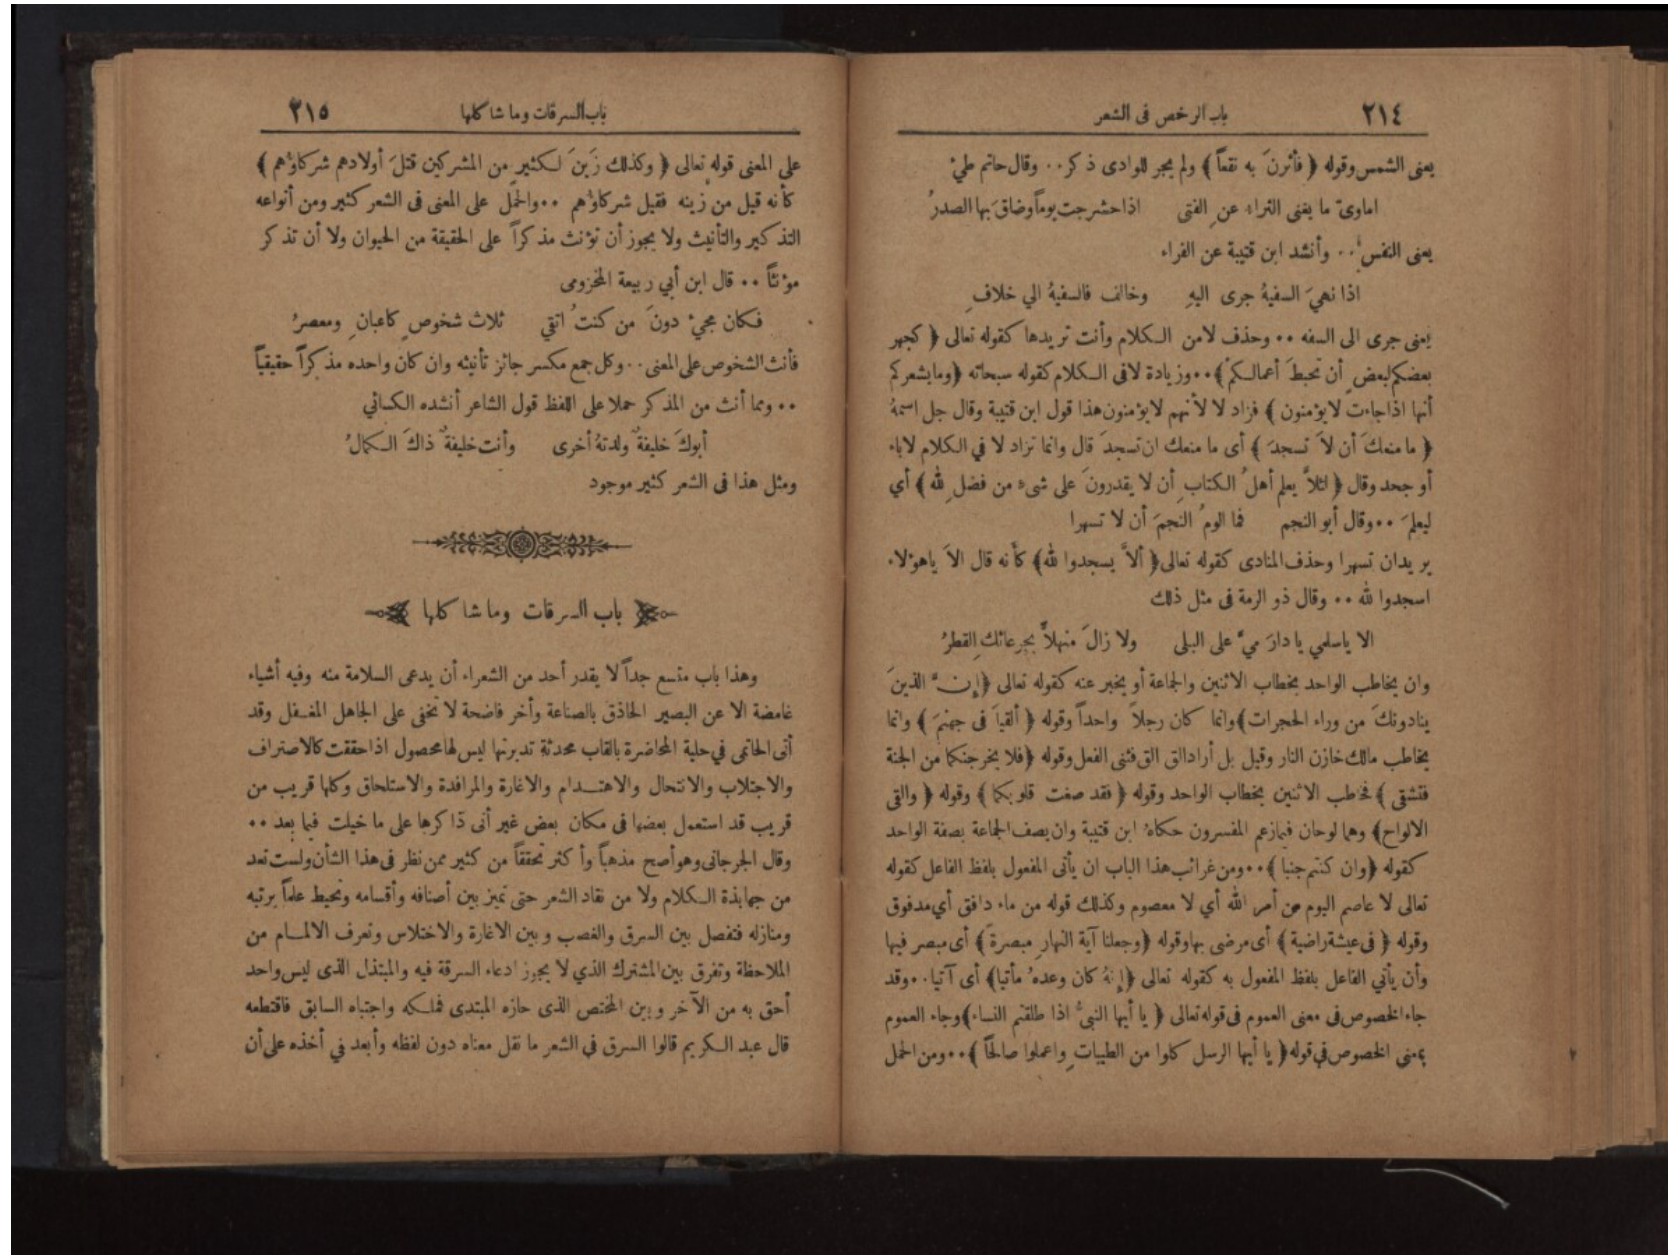 ٢١٤ باب الرخص فى الشعر
يعنى الشمس وقوله ﴿ فأثرنَ به نقعاً ﴾ ولم يجر للوادى ذكر ٠٠ وقال حاتم طىء
اماوىّ ما يغنى الثراء عنِ الفتى اذا حشرجت يوماً وضاقَ بها الصدرُ
يعنى النفس ٠٠ وأنشد ابن قتيبة عن الفراء
اذا نهيَ السفيهُ جرى اليهِ وخالف فالسفيهُ الي خلافِ
يعنى جرى الى السفه ٠٠ وحذف لامن الكلام وأنت تريدها كقوله تعالى ﴿ كجهر
بعضكم لبعضٍ أن تحبطَ أعمالكمْ ﴾ ٠٠ وزيادة لافى الكلام كقوله سبحانه ﴿ ومايشعركم
أنها اذا جاءت لايؤمنون ﴾ فزاد لا لأنهم لايؤمنون هذا قول ابن قتيبة وقال جل اسمهُ
﴿ ما منعكَ أن لاَ تسجدَ ﴾ أى ما منعك ان تسجدَ قال وانما تزاد لا في الكلام لاباء
أو جحد وقال ﴿ لئلاَّ يعلم أهلُ الكتابِ أن لا يقدرونَ على شىء من فضلِ لله ﴾ أي
ليعلمَ ٠٠ وقال أبو النجم فما الومُ النجمَ أن لا تسهرا
يريدان تسهرا وحذف المنادى كقوله تعالى ﴿ ألاَّ يسجدوا لله ﴾ كأنه قال الاَ ياهؤلاء
اسجدوا لله ٠٠ وقال ذو الرمة فى مثل ذلك
الا ياسلمي يا دارَ ميَّ على البلى ولا زالَ منهلاًّ بجرعائكِ القطرُ
وان يخاطب الواحد بخطاب الاثنين والجماعة أو يخبر عنه كقوله تعالى ﴿ إنَّ الذينَ
ينادونكَ من وراء الحجرات ﴾ وانما كان رجلاً واحداً وقوله ﴿ ألقيا فى جهنمَ ﴾ وانما
يخاطب مالك خازن النار وقيل بل أراد الق الق فثنى الفعل وقوله ﴿ فلا يخرجنكما من الجنة
فتشقى ﴾ فخاطب الاثنين بخطاب الواحد وقوله ﴿ فقد صغت قلوبكما ﴾ وقوله ﴿ والقى
الالواح ﴾ وهما لوحان فيمازعم المفسرون حكاهُ ابن قتيبة وان يصف الجماعة بصفة الواحد
كقوله ﴿ وان كنتم جنبا ﴾ ٠٠ ومن غرائب هذا الباب ان يأتى المفعول بلفظ الفاعل كقوله
تعالى لا عاصم اليوم من أمر الله أي لا معصوم وكذلك قوله من ماء دافق أي مدفوق
وقوله ﴿ فى عيشة راضية ﴾ أى مرضى بها وقوله ﴿ وجعلنا آية النهارِ مبصرةً ﴾ أى مبصر فيها
وأن يأتي الفاعل بلفظ المفعول به كقوله تعالى ﴿ إنهُ كان وعدهُ مأتيا ﴾ أى آتيا ٠٠ وقد
جاء الخصوص فى معنى العموم فى قوله تعالى ﴿ يا أيها النبىُّ اذا طلقتم النساء ﴾ وجاء العموم
بمعنى الخصوص في قوله ﴿ يا أيها الرسل كلوا من الطيباتِ واعملوا صالحاً ﴾ ٠٠ ومن الحمل
باب السرقات وما شاكلها ٢١٥
على المعنى قوله تعالى ﴿ وكذلك زَينَ لكثيرٍ من المشركين قتلَ أولادهم شركاؤهم ﴾
كأنه قيل من زينه فقيل شركاؤهم ٠٠ والحمل على المعنى فى الشعر كثير ومن أنواعه
التذكير والتأنيث ولا يجوز أن تؤنث مذكراً على الحقيقة من الحيوان ولا أن تذكر
مؤنثاً ٠٠ قال ابن أبي ربيعة المخزومى
فكان مجيْ دونَ من كنتُ اتقي ثلاث شخوصٍ كاعبانِ ومعصرُ
فأنث الشخوص على المعنى ٠٠ وكل جمع مكسر جائز تأنيثه وان كان واحده مذكراً حقيقياً
٠٠ ومما أنث من المذكر حملا على اللفظ قول الشاعر أنشده الكسائي
أبوكَ خليفةٌ ولدتهُ أخرى وأنت خليفةٌ ذاكَ الكمالُ
ومثل هذا فى الشعر كثير موجود
باب السرقات وما شاكلها
وهذا باب متسع جداً لا يقدر أحد من الشعراء أن يدعى السلامة منه وفيه أشياء
غامضة الا عن البصير الحاذق بالصناعة وأخر فاضحة لا تخفى على الجاهل المغفل وقد
أتى الحاتمى في حلية المحاضرة بالقاب محدثة تدبرتها ليس لها محصول اذا حققت كالاصتراف
والاجتلاب والانتحال والاهتدام والاغارة والمرافدة والاستلحاق وكلها قريب من
قريب قد استعمل بعضها فى مكان بعض غير أنى ذاكرها على ما خيلت فيما بعد ٠٠
وقال الجرجانى وهو أصح مذهباً وأكثر تحققاً من كثير ممن نظر فى هذا الشأن ولست تعد
من جهابذة الكلام ولا من نقاد الشعر حتى تميز بين أصنافه وأقسامه وتحيط علماً برتبه
ومنازله فتفصل بين السرق والغصب وبين الاغارة والاختلاس وتعرف الالمام من
الملاحظة وتفرق بين المشترك الذي لا يجوز ادعاء السرقة فيه والمبتذل الذى ليس واحد
أحق به من الآخر وبين المختص الذى حازه المبتدى فملكه واجتباه السابق فاقتطعه
قال عبد الكريم قالوا السرق في الشعر ما نقل معناه دون لفظه وأبعد في أخذه على أن